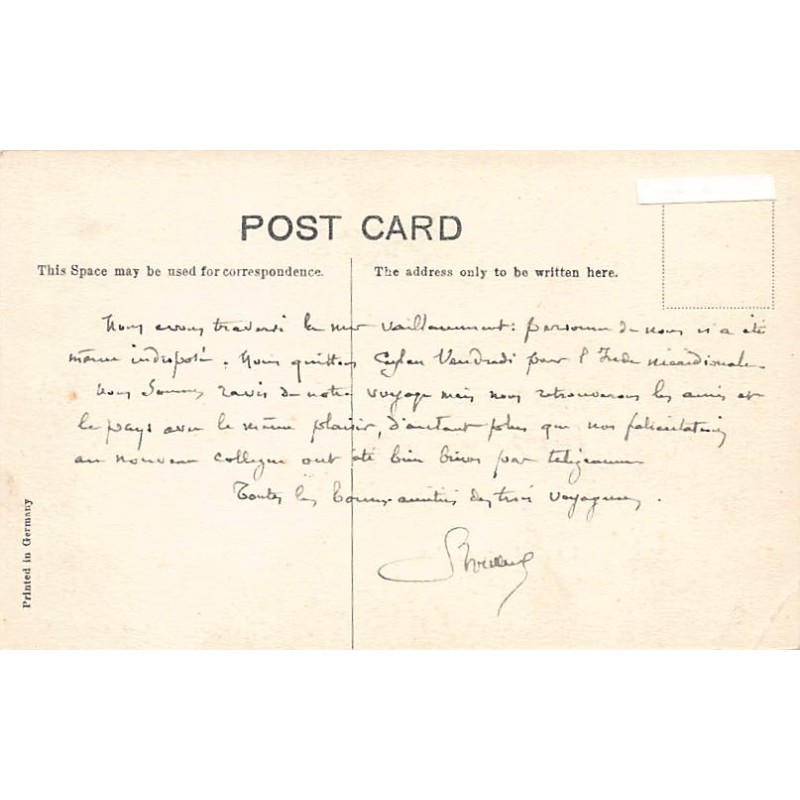 POST CARD
This Space may be used for correspondence.
The address only to be written here.
Nous avons traversé la mer vaillamment : personne de nous n'a été
même indisposé. Nous quittons Ceylan Vendredi pour l'Inde méridionale
Nous sommes ravis de notre voyage mais nous retrouverons les amis et
le pays avec le même plaisir, d'autant plus que nos félicitations
au nouveau collègue ont été bien par télégramme
Toutes les bonnes amitiés des trois voyageurs.
Printed in Germany